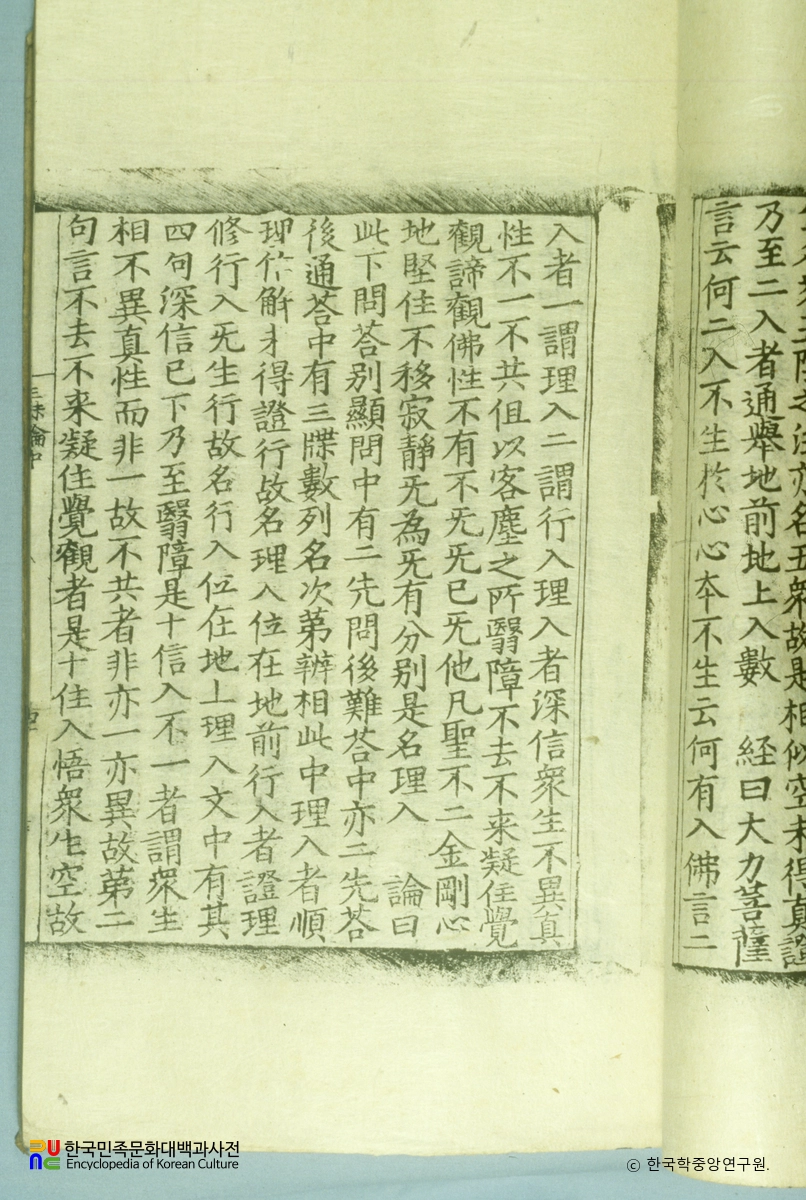 之法亦名五衆故是相似空未得真證
乃至二入者通舉地前地上入數　経曰大力菩薩
言云何二入不生於心心本不生云何有入佛言二
入者一謂理入二謂行入理入者深信衆生不異真
性不一不共但以客塵之所翳障不去不来凝住覺
觀諦觀佛性不有不无无已无他凡聖不二金剛心
地堅住不移寂靜无為无有分别是名理入　論曰
此下問荅别顯問中有二先問後難荅中亦二先荅
後通荅中有三牒數列名次第辨相此中理入者順
理作解未得證行故名理入位在地前行入者證理
修行入无生行故名行入位在地上理入文中有其
四句深信已下乃至翳障是十信入不一者謂衆生
相不異真性而非一故不共者非亦一亦異故第二
句言不去不来凝住覺觀者是十住入悟衆生空故
三昧論中
한국민족문화대백과사전
Encyclopedia of Korean Culture
ⓒ 한국학중앙연구원.